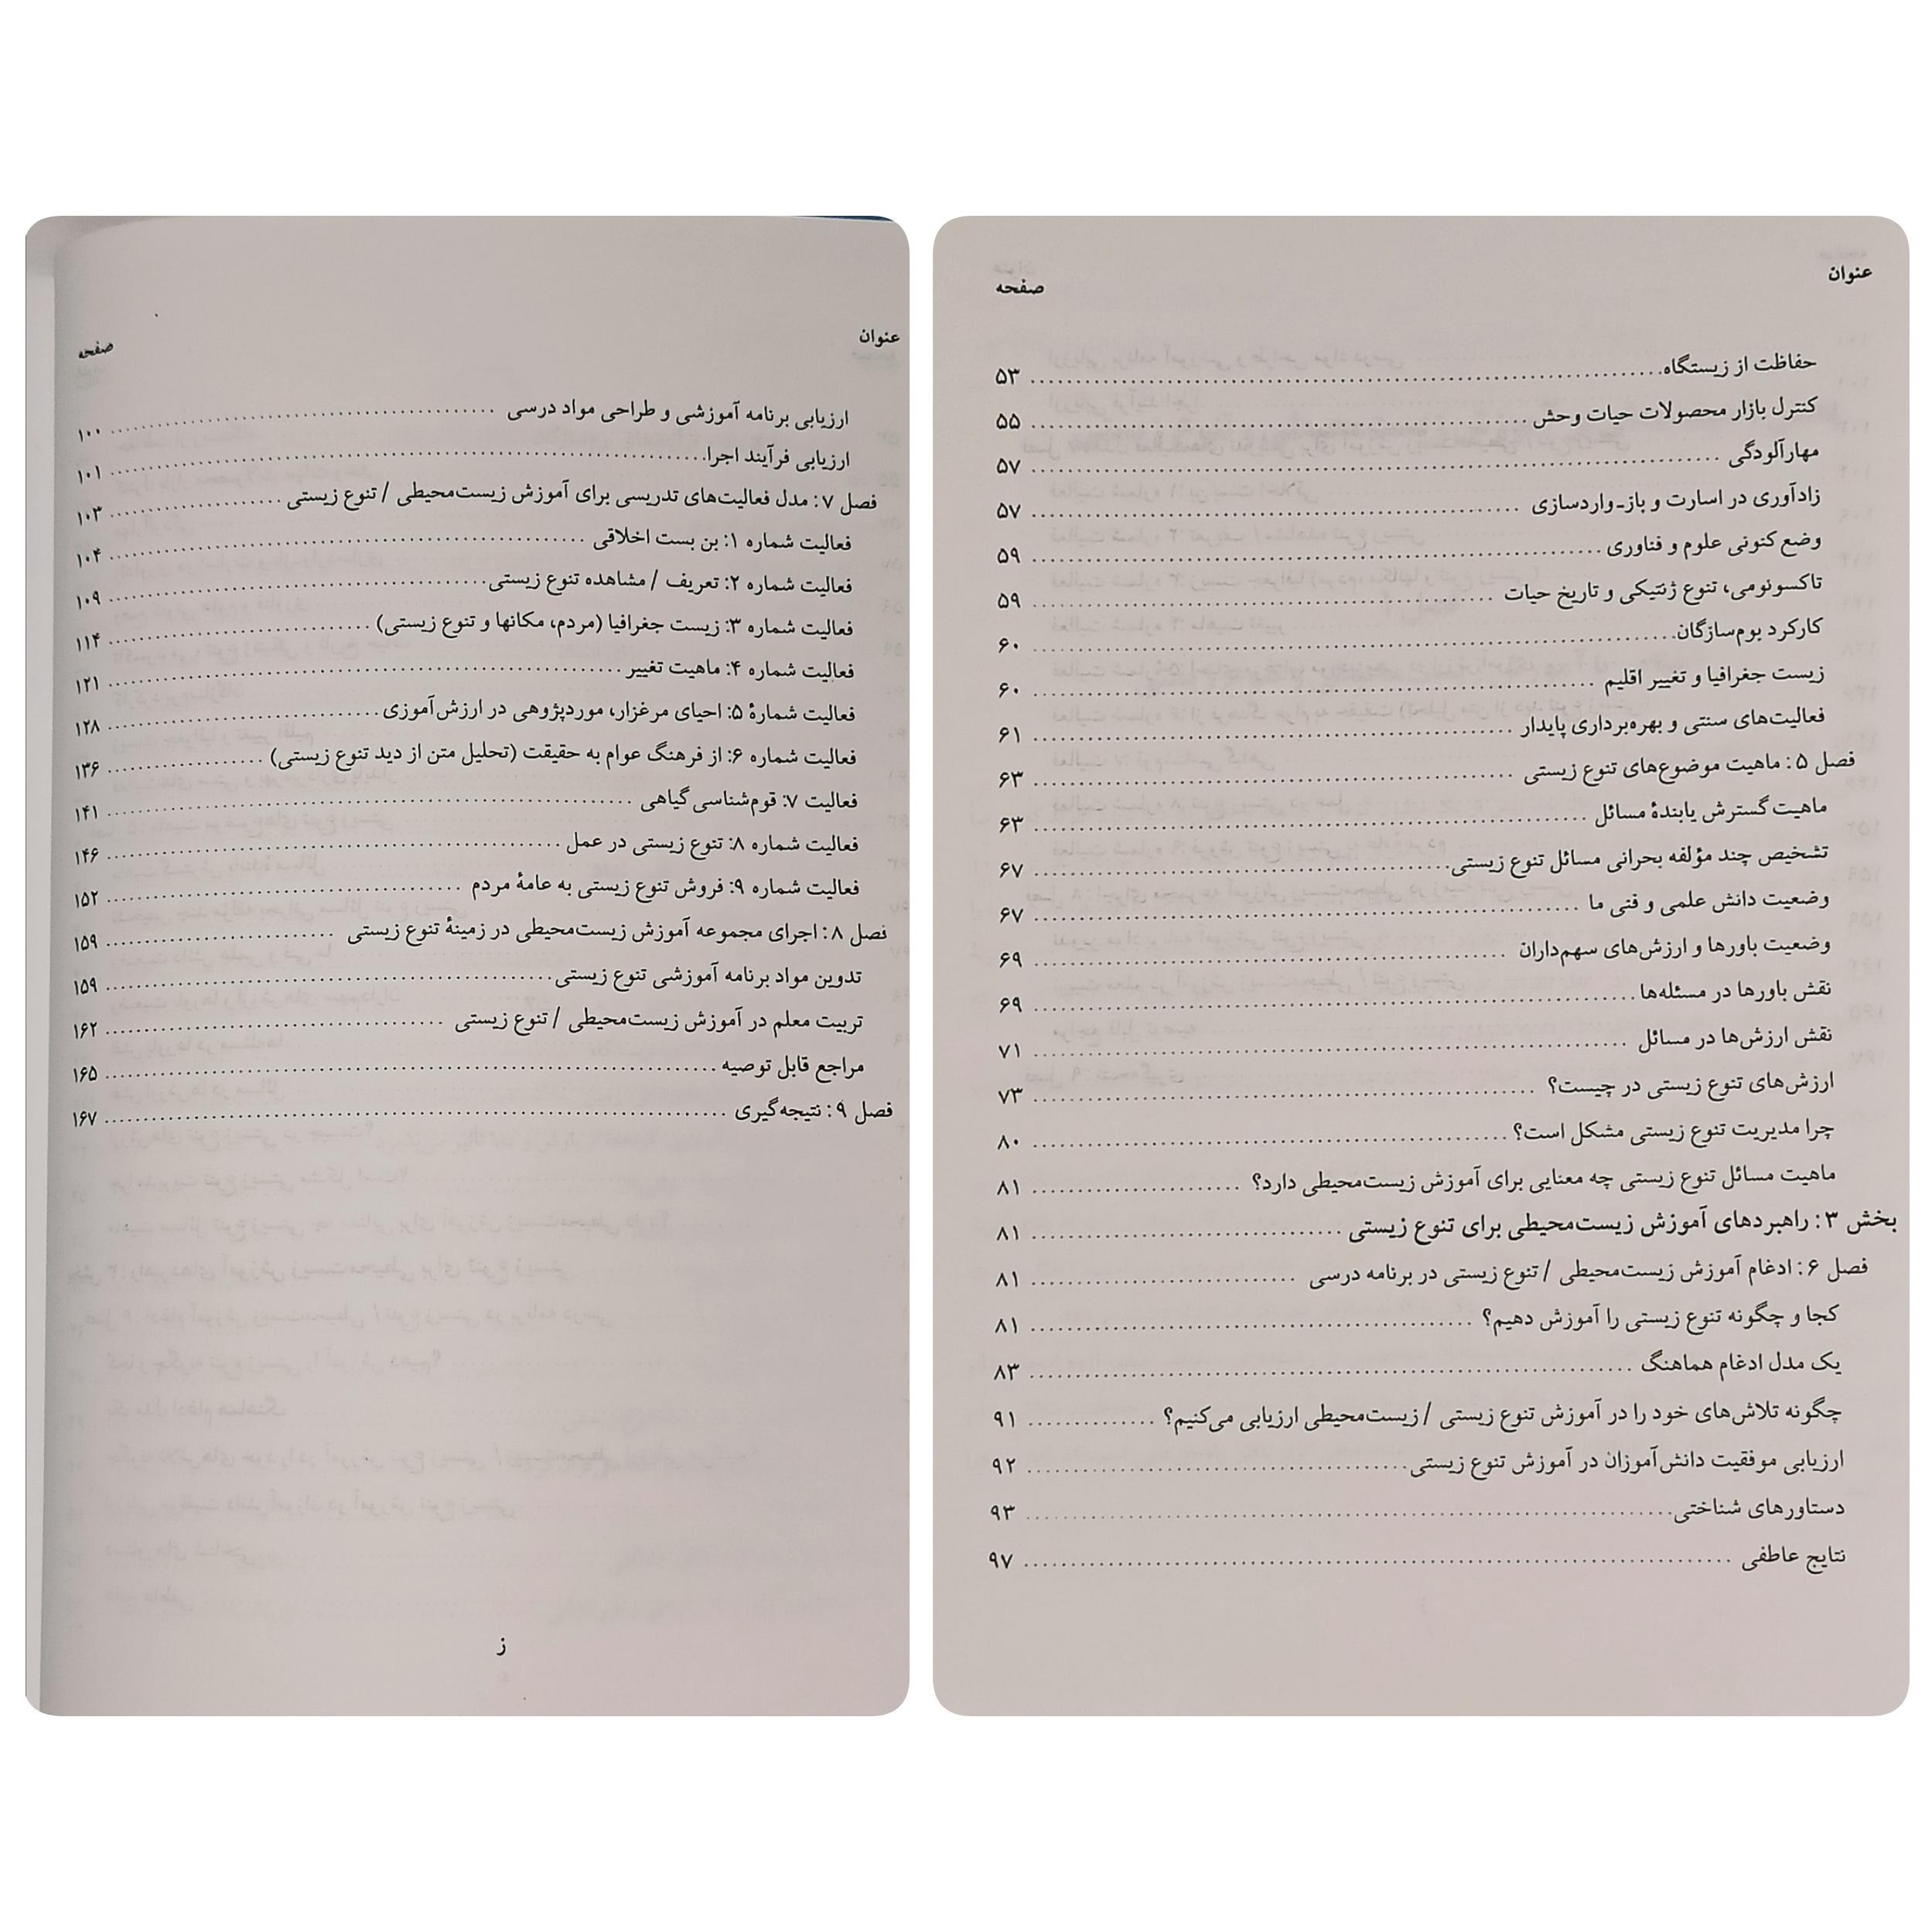 عنوان صفحه
حفاظت از زیستگاه ۵۳
کنترل بازار محصولات حیات وحش ۵۵
مهارآلودگی ۵۷
زادآوری در اسارت و باز-واردسازی ۵۷
وضع کنونی علوم و فناوری ۵۹
تاکسونومی، تنوع ژنتیکی و تاریخ حیات ۵۹
کارکرد بوم‌سازگان ۶۰
زیست جغرافیا و تغییر اقلیم ۶۰
فعالیت‌های سنتی و بهره‌برداری پایدار ۶۱
فصل ۵: ماهیت موضوع‌های تنوع زیستی ۶۳
ماهیت گسترش یابندهٔ مسائل ۶۳
تشخیص چند مؤلفه بحرانی مسائل تنوع زیستی ۶۷
وضعیت دانش علمی و فنی ما ۶۷
وضعیت باورها و ارزش‌های سهم‌داران ۶۹
نقش باورها در مسئله‌ها ۶۹
نقش ارزش‌ها در مسائل ۷۱
ارزش‌های تنوع زیستی در چیست؟ ۷۳
چرا مدیریت تنوع زیستی مشکل است؟ ۸۰
ماهیت مسائل تنوع زیستی چه معنایی برای آموزش زیست‌محیطی دارد؟ ۸۱
بخش ۳: راهبردهای آموزش زیست‌محیطی برای تنوع زیستی ۸۱
فصل ۶: ادغام آموزش زیست‌محیطی / تنوع زیستی در برنامه درسی ۸۱
کجا و چگونه تنوع زیستی را آموزش دهیم؟ ۸۱
یک مدل ادغام هماهنگ ۸۳
چگونه تلاش‌های خود را در آموزش تنوع زیستی / زیست‌محیطی ارزیابی می‌کنیم؟ ۹۱
ارزیابی موفقیت دانش‌آموزان در آموزش تنوع زیستی ۹۲
دستاورهای شناختی ۹۳
نتایج عاطفی ۹۷
عنوان صفحه
ارزیابی برنامه آموزشی و طراحی مواد درسی ۱۰۰
ارزیابی فرآیند اجرا ۱۰۱
فصل ۷: مدل فعالیت‌های تدریسی برای آموزش زیست‌محیطی / تنوع زیستی ۱۰۳
فعالیت شماره ۱: بن بست اخلاقی ۱۰۴
فعالیت شماره ۲: تعریف / مشاهده تنوع زیستی ۱۰۹
فعالیت شماره ۳: زیست جغرافیا (مردم، مکانها و تنوع زیستی) ۱۱۴
فعالیت شماره ۴: ماهیت تغییر ۱۲۱
فعالیت شمارهٔ ۵: احیای مرغزار، موردپژوهی در ارزش‌آموزی ۱۲۸
فعالیت شماره ۶: از فرهنگ عوام به حقیقت (تحلیل متن از دید تنوع زیستی) ۱۳۶
فعالیت ۷: قوم‌شناسی گیاهی ۱۴۱
فعالیت شماره ۸: تنوع زیستی در عمل ۱۴۶
فعالیت شماره ۹: فروش تنوع زیستی به عامهٔ مردم ۱۵۲
فصل ۸: اجرای مجموعه آموزش زیست‌محیطی در زمینهٔ تنوع زیستی ۱۵۹
تدوین مواد برنامه آموزشی تنوع زیستی ۱۵۹
تربیت معلم در آموزش زیست‌محیطی / تنوع زیستی ۱۶۲
مراجع قابل توصیه ۱۶۵
فصل ۹: نتیجه‌گیری ۱۶۷
ز